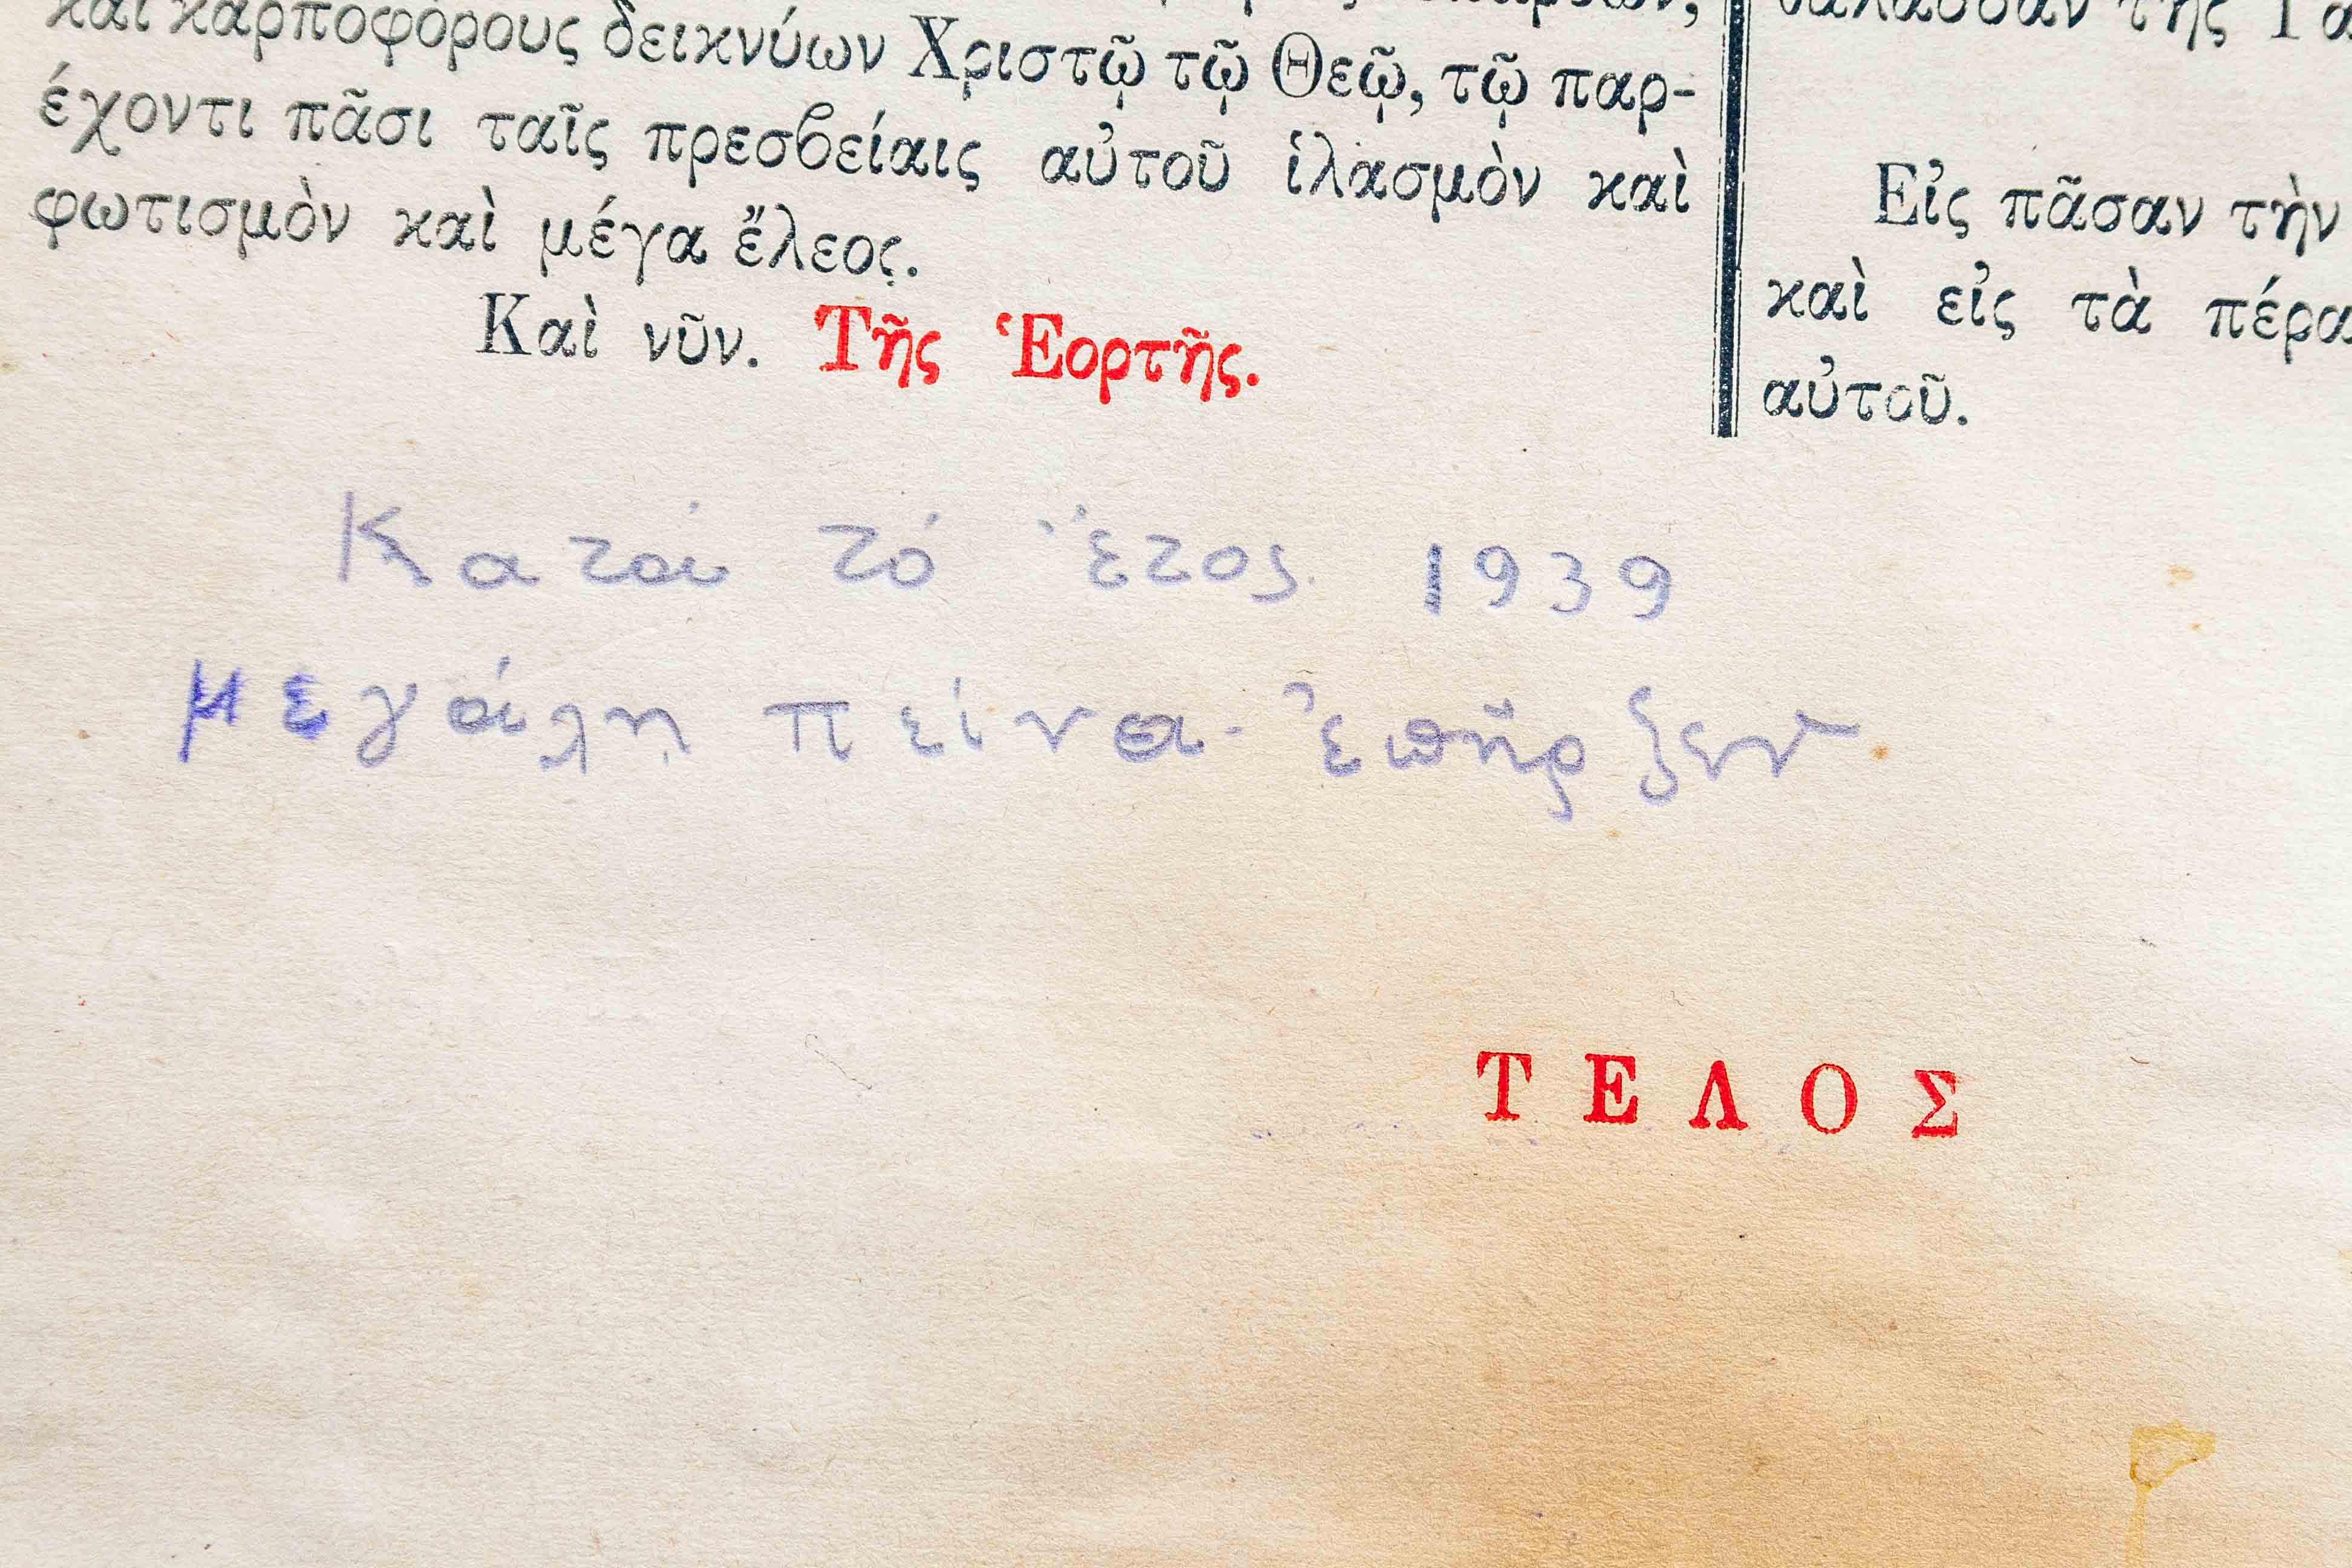 καὶ καρποφόρους δεικνύων Χριστῷ τῷ Θεῷ, τῷ παρ-
έχοντι πᾶσι ταῖς πρεσβείαις αὐτοῦ ἱλασμὸν καὶ
φωτισμὸν καὶ μέγα ἔλεος.
Καὶ νῦν. Τῆς Ἑορτῆς.
θάλασσαν τῆς Γα
Εἰς πᾶσαν τὴν
καὶ εἰς τὰ πέρα
αὐτοῦ.
Κατά τό ἔτος 1939
μεγάλη πείνα ἐπῆρξεν
ΤΕΛΟΣ